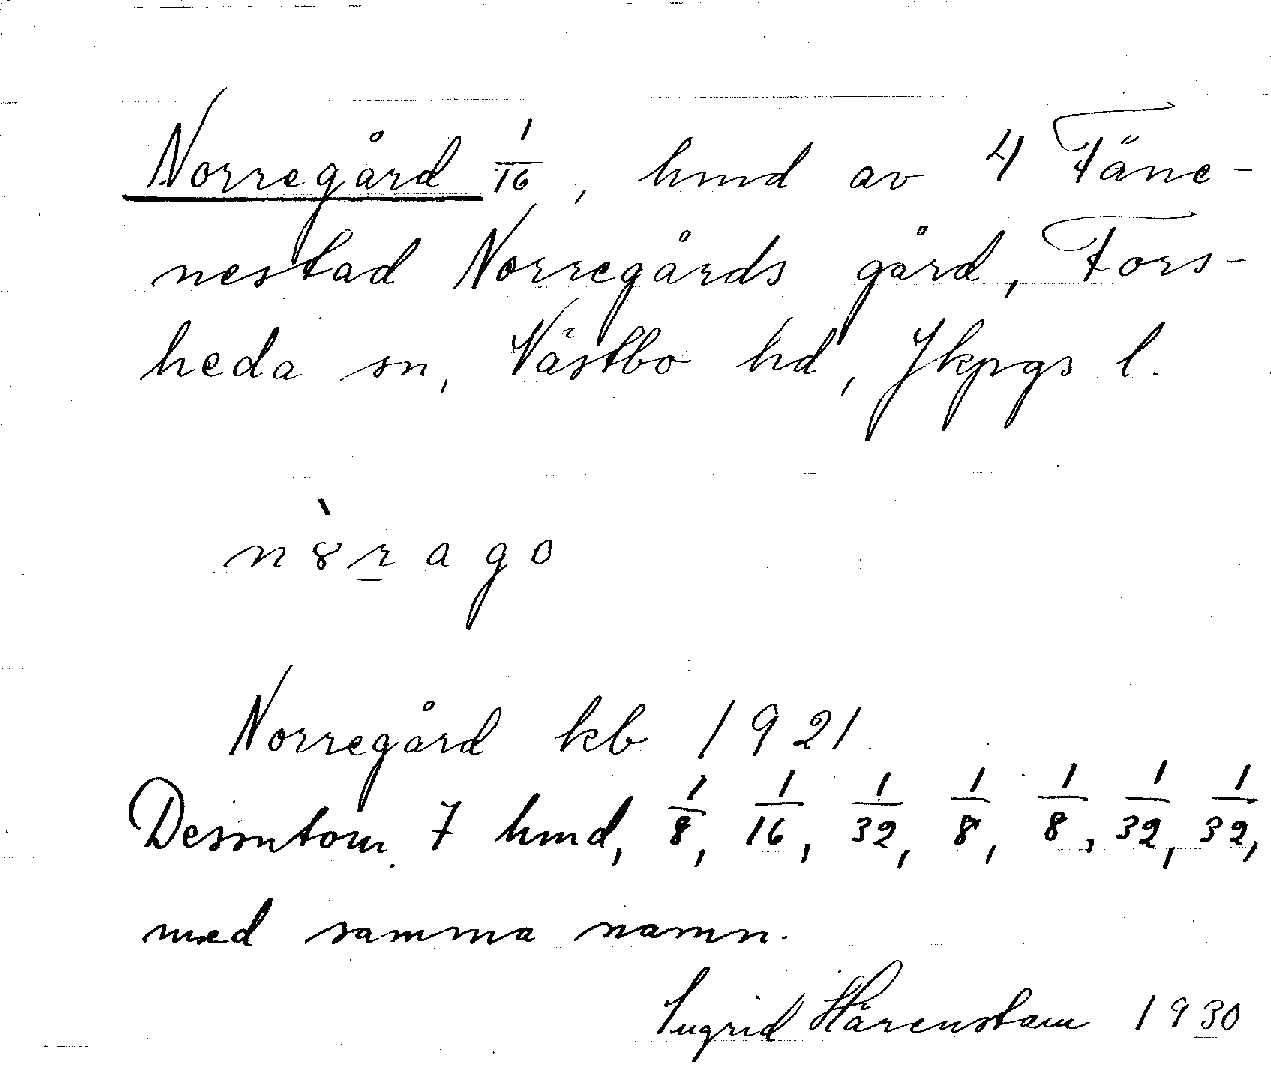 Norregård 1/16, hmd av 4 Fäne-
nestad Norregårds gård, Fors-
heda sn, Västbo hd, Jkpgs l.
n8̀r̲ago
Norregård kb 1921
Dessutom 7 hmd, 1/8, 1/16, 1/32, 1/8, 1/8, 1/32, 1/32,
med samma namn.
Ingrid Härenstam 1930